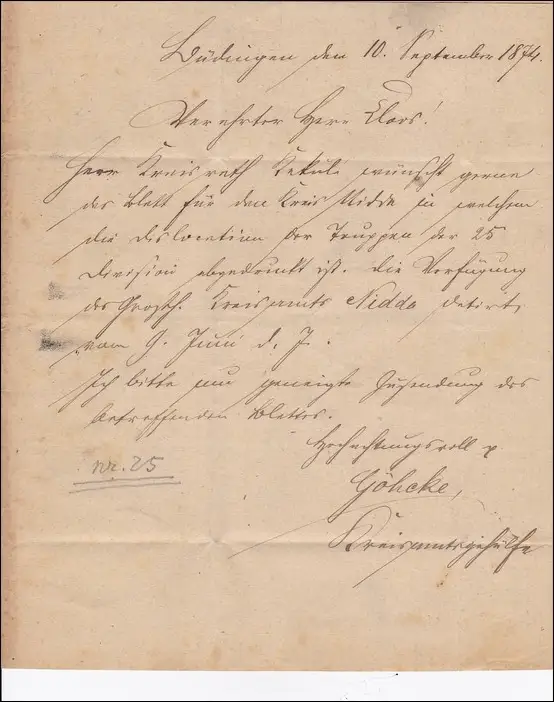 Büdingen den 10. September 1874.
Verehrter Herr Cloos!
Herr Kreisrath Kekule wünscht gerne
das Blatt für den Kreis Nidda in welchem
die Dislocation der Truppen der 25
Division abgedruckt ist. Die Verfügung
des Großh. Kreisamts Nidda datirt
vom 9. Juni d. J.
Ich bitte um geneigte Zusendung des
betreffenden Blattes.
Hochachtungsvoll
nr. 25
Göhcke,
Kreisamtsgehülfe